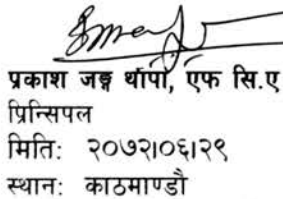 प्रकाश जङ्ग थापा, एफ सि.ए
प्रिन्सिपल
मिति: २०७२।०६।२९
स्थान: काठमाण्डौ